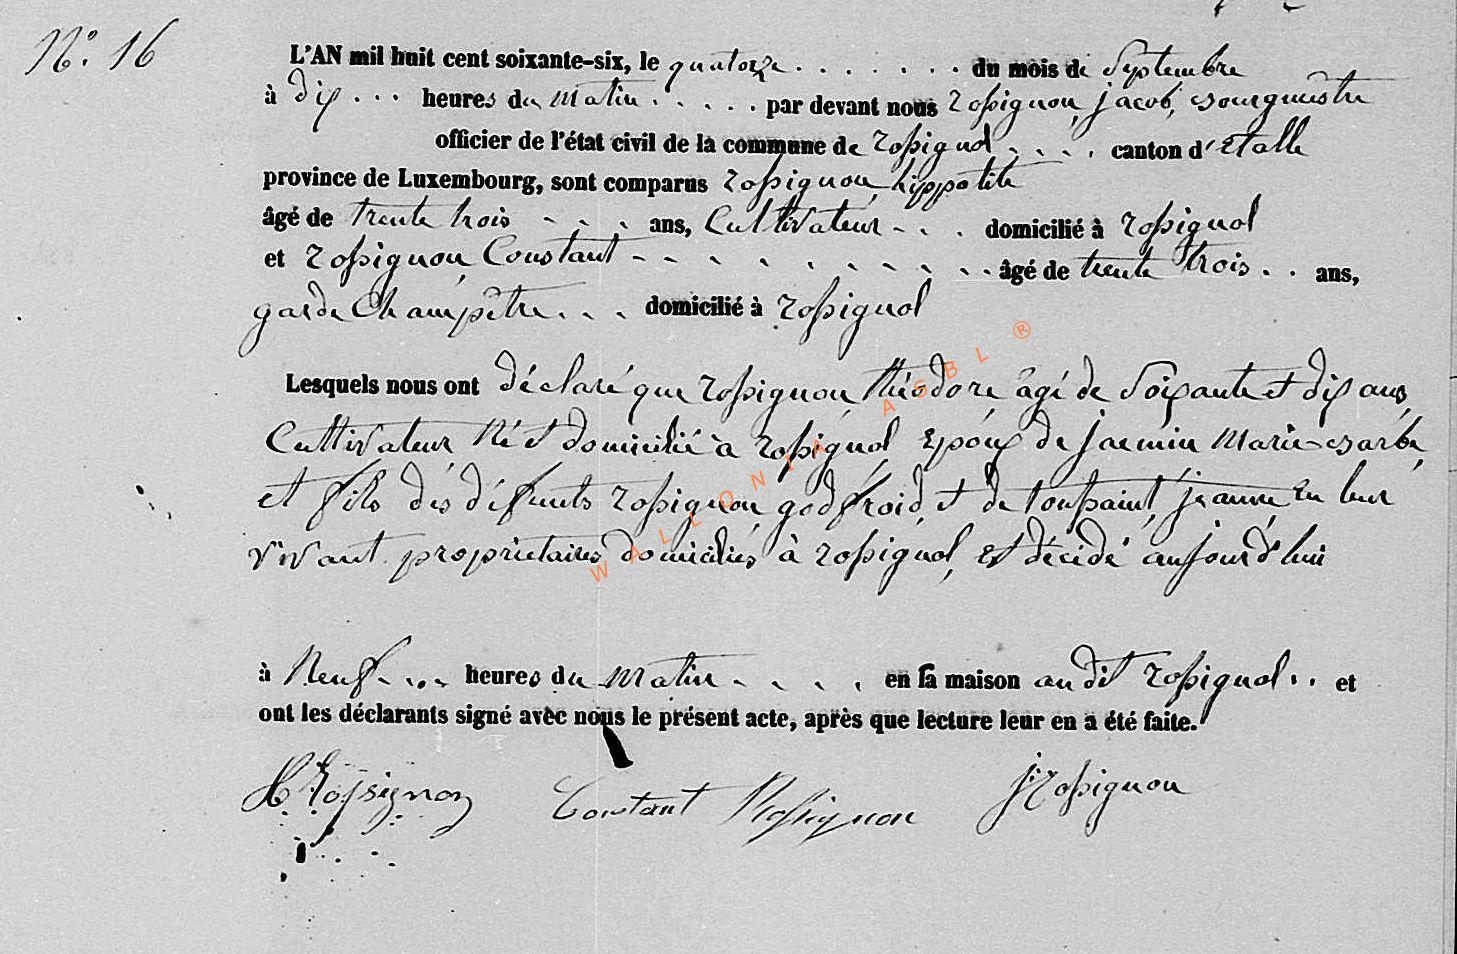 N°. 16
L'AN mil huit cent soixante-six, le quatorze . . . . . . . du mois de Septembre
à dix . . . heures du matin . . . . . par devant nous rossignon, jacob, bourgmestre
officier de l'état civil de la commune de rossignol . . . . canton d'Etalle
province de Luxembourg, sont comparus rossignon hippolite
âgé de trente trois - - - . ans, Cultivateur - - . domicilié à rossignol
et rossignon, Constant - - - - - - - - - . . âgé de trente trois . . ans,
garde Champêtre . . . domicilié à rossignol
Lesquels nous ont déclaré que rossignon, théodore âgé de Soixante et dix ans,
Cultivateur Né et domicilié à rossignol, Epoux de jacmin Marie-barbe,
et fils des défunts rossignon, godfroid, et de toussaint, jeanne En leur
vivant propriétaires domiciliés à rossignol, Est décédé aujourd'hui
à Neuf - . . - heures du matin - . . . . en sa maison au dit rossignol . . et
ont les déclarants signé avec nous le présent acte, après que lecture leur en a été faite.
H Rossignon Constant Rossignon J Rossignon
WALLONIA ASBL ®